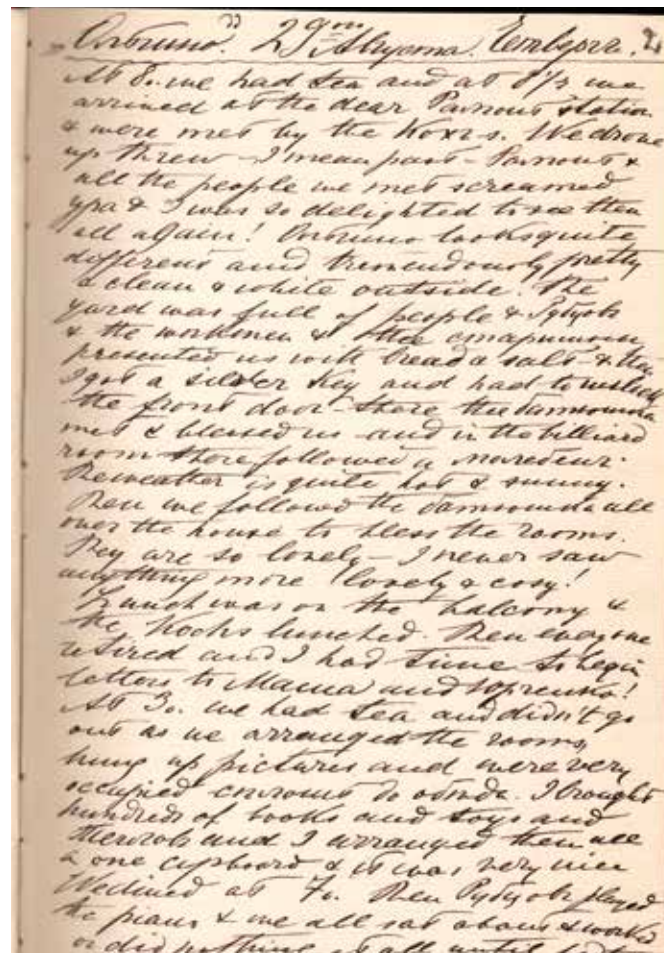 Ольгино. 29го Августа.
At 8. we had tea and at 8½ we
arrived at the dear Рамонь station
& were met by the Кохъ s. We drove
up threw – I mean past – Рамонь &
all the people we met screamed
ура & I was so delighted to see them
all again! Ольгино looks quite
different and tremendously pretty
& clean & white outside. The
yard was full of people &
& the workmen & the старшины
presented us with bread & salt & then
I got a silder key and had to unlock
the front door – there the батюшка
met & blessed us and in the billiard
room there followed a молебенъ.
The weather is quite hot & sunny.
Then we followed the батюшка all
over the house to bless the rooms.
They are so lovely – I never saw
anything more lovely & cosy!
Lunch was on the balcony &
the Kochs lunched. Then everyone
retired and I had time to begin
letters to Mama and
At 3. we had tea and didn't go
out as we arranged the rooms,
hung up pictures and were very
occupied до обѣда. I brought
hundreds of books and toys and
and I arranged them all
a one cupboard & it was very nice
We dined at 7. Then played
the piano & we all sat about & worked
or did nothing at all until